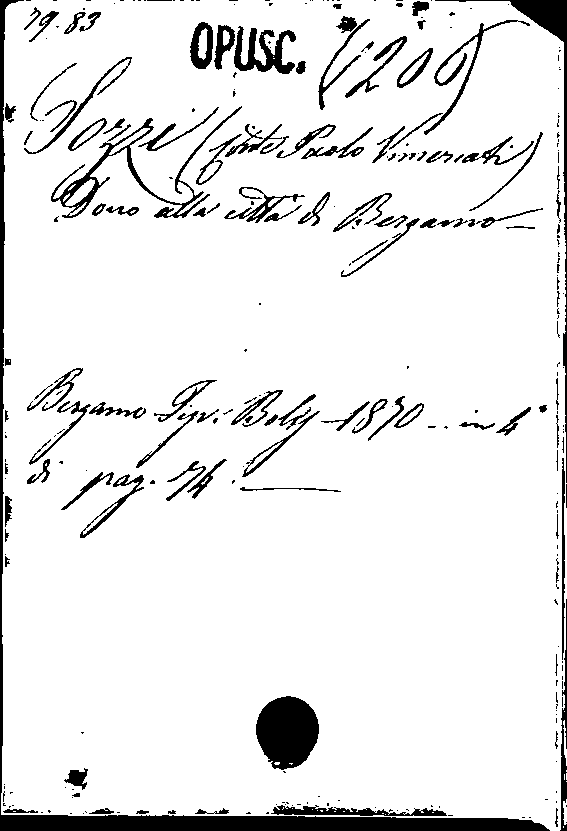 79.83
OPUSC. (200)
Sozzi (Conte Paolo Vimercati)
Dono alla città di Bergamo —
Bergamo Tip: Bolis – 1870 – in 4°
di pag. 74. —